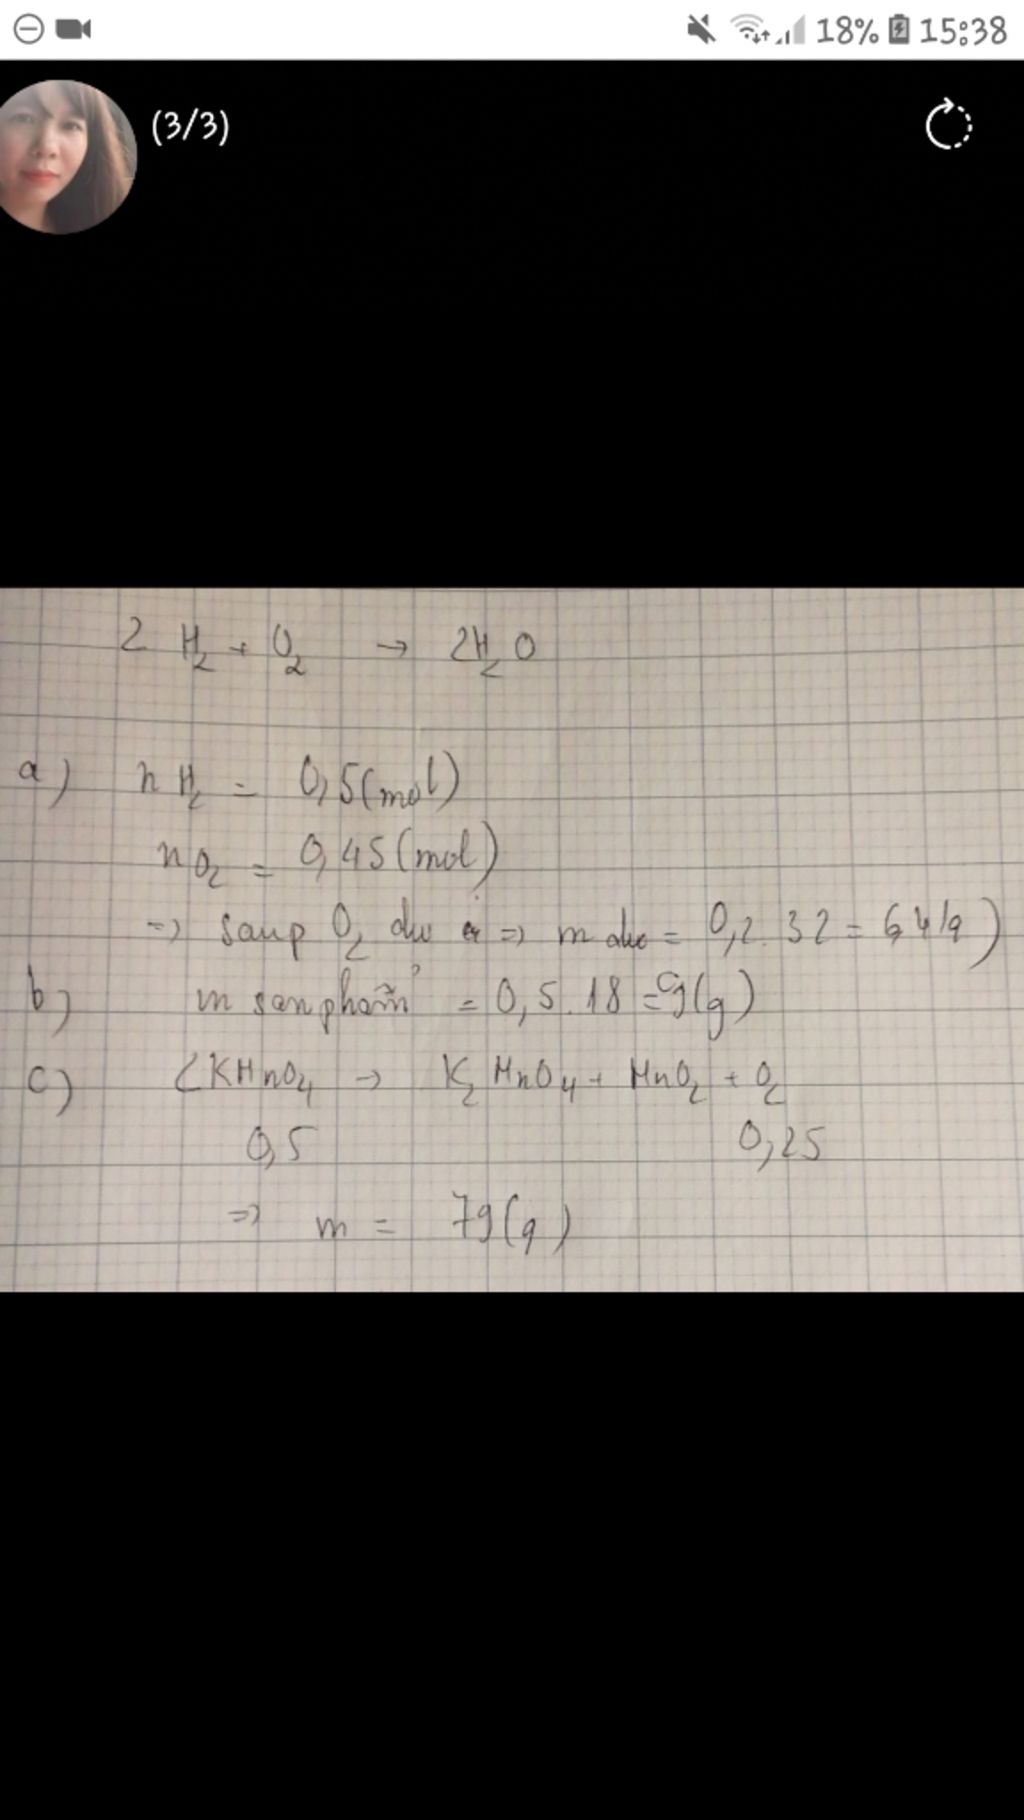 18% 15:38
(3/3)
2 H₂ + O₂ → 2H₂O
a) nH₂ = 0,5(mol)
nO₂ = 0,45(mol)
=> saup O₂ dư => m dư = 0,2.32 = 6,4(g)
b) m sản phẩm = 0,5.18 = 9(g)
c) 2KMnO₄ → K₂MnO₄ + MnO₂ + O₂
0,5 0,25
=> m = 79(g)